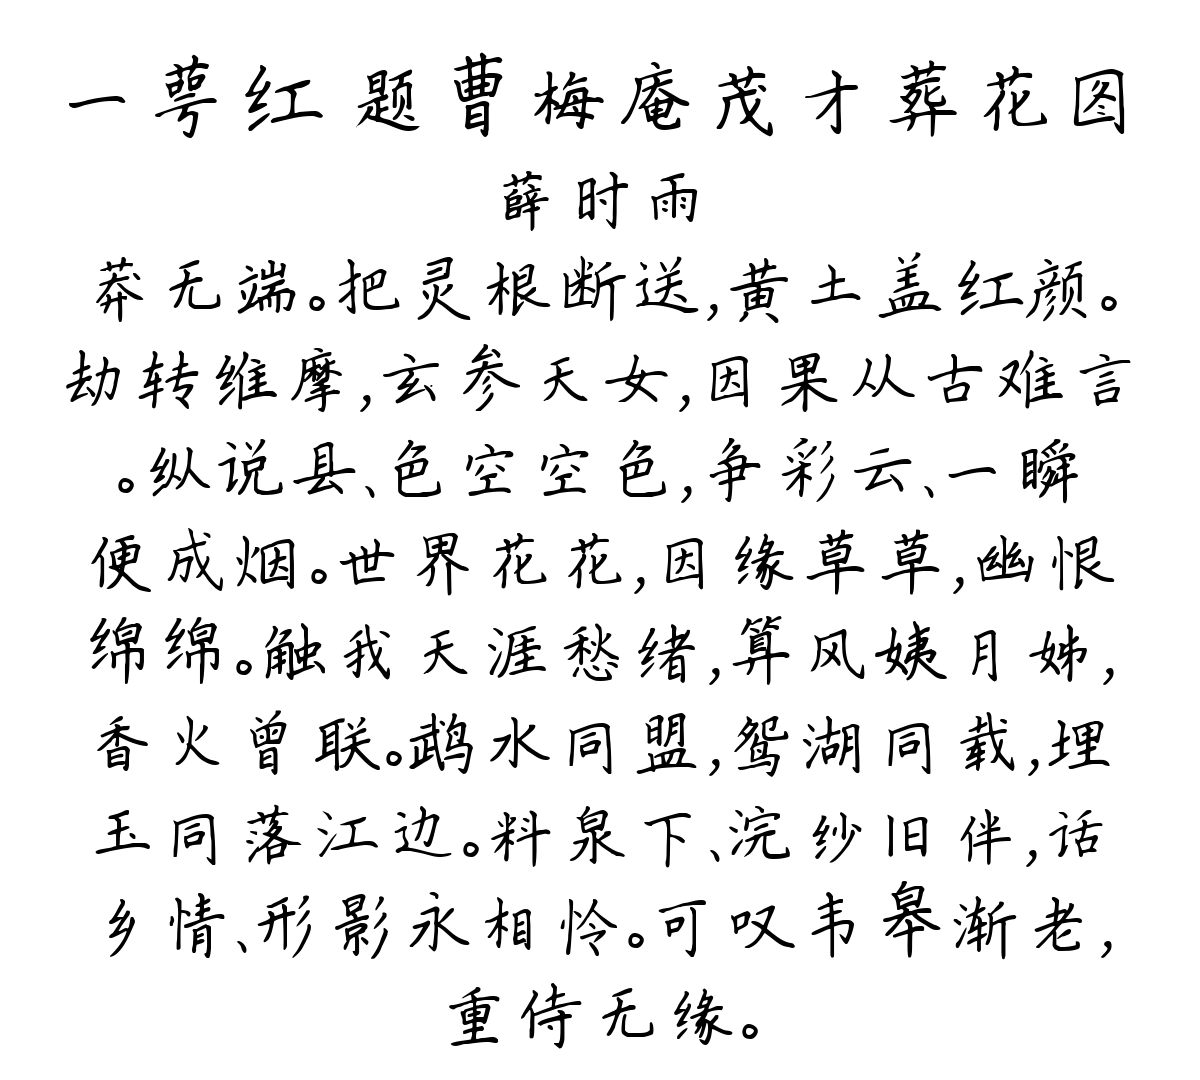 一萼红 题曹梅庵茂才葬花图
薛时雨
莽无端。把灵根断送,黄土盖红颜。
劫转维摩,玄参天女,因果从古难言
。纵说县、色空空色,争彩云、一瞬
便成烟。世界花花,因缘草草,幽恨
绵绵。触我天涯愁绪,算风姨月姊,
香火曾联。鹉水同盟,鸳湖同载,埋
玉同落江边。料泉下、浣纱旧伴,话
乡情、形影永相怜。可叹韦皋渐老,
重侍无缘。